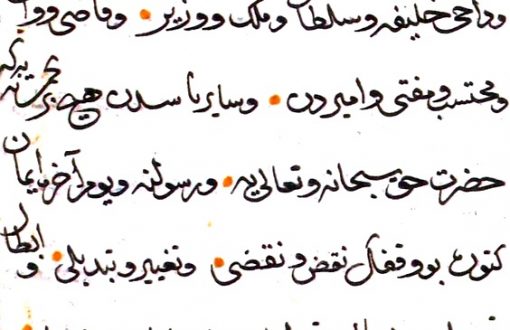 خليفه وسلطان وملك ووزير • وقاضى ووا
ومحتسب ومفتى واميردن • وساير ناسدن هيچ بر يه كه
حضرت حق سبحانه وتعالى يه • ورسولنه ويوم آخره ايمان
كتورن بو وقفك نقض ونقضى • وتغيير وتبديلى • وابطال